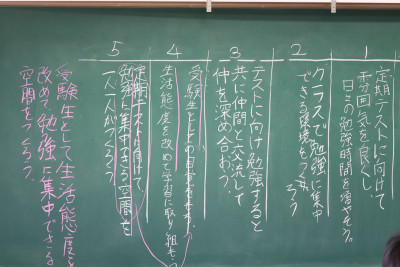 1
定期テストに向けて
雰囲気を良くし
日々の勉強時間を増やそう。
2
クラスで勉強に集中
できる環境をつくろう
3
テストに向け勉強すると
共に仲間と交流して
仲を深め合おう。
4
受験生としての自覚をもち、
生活態度を改め学習に取り組もう
5
定期テストに向けて、
勉強に集中できる空間を
一人一人がつくろう。
受験生として生活態度を
改めて勉強に集中できる
空間をつくろう。